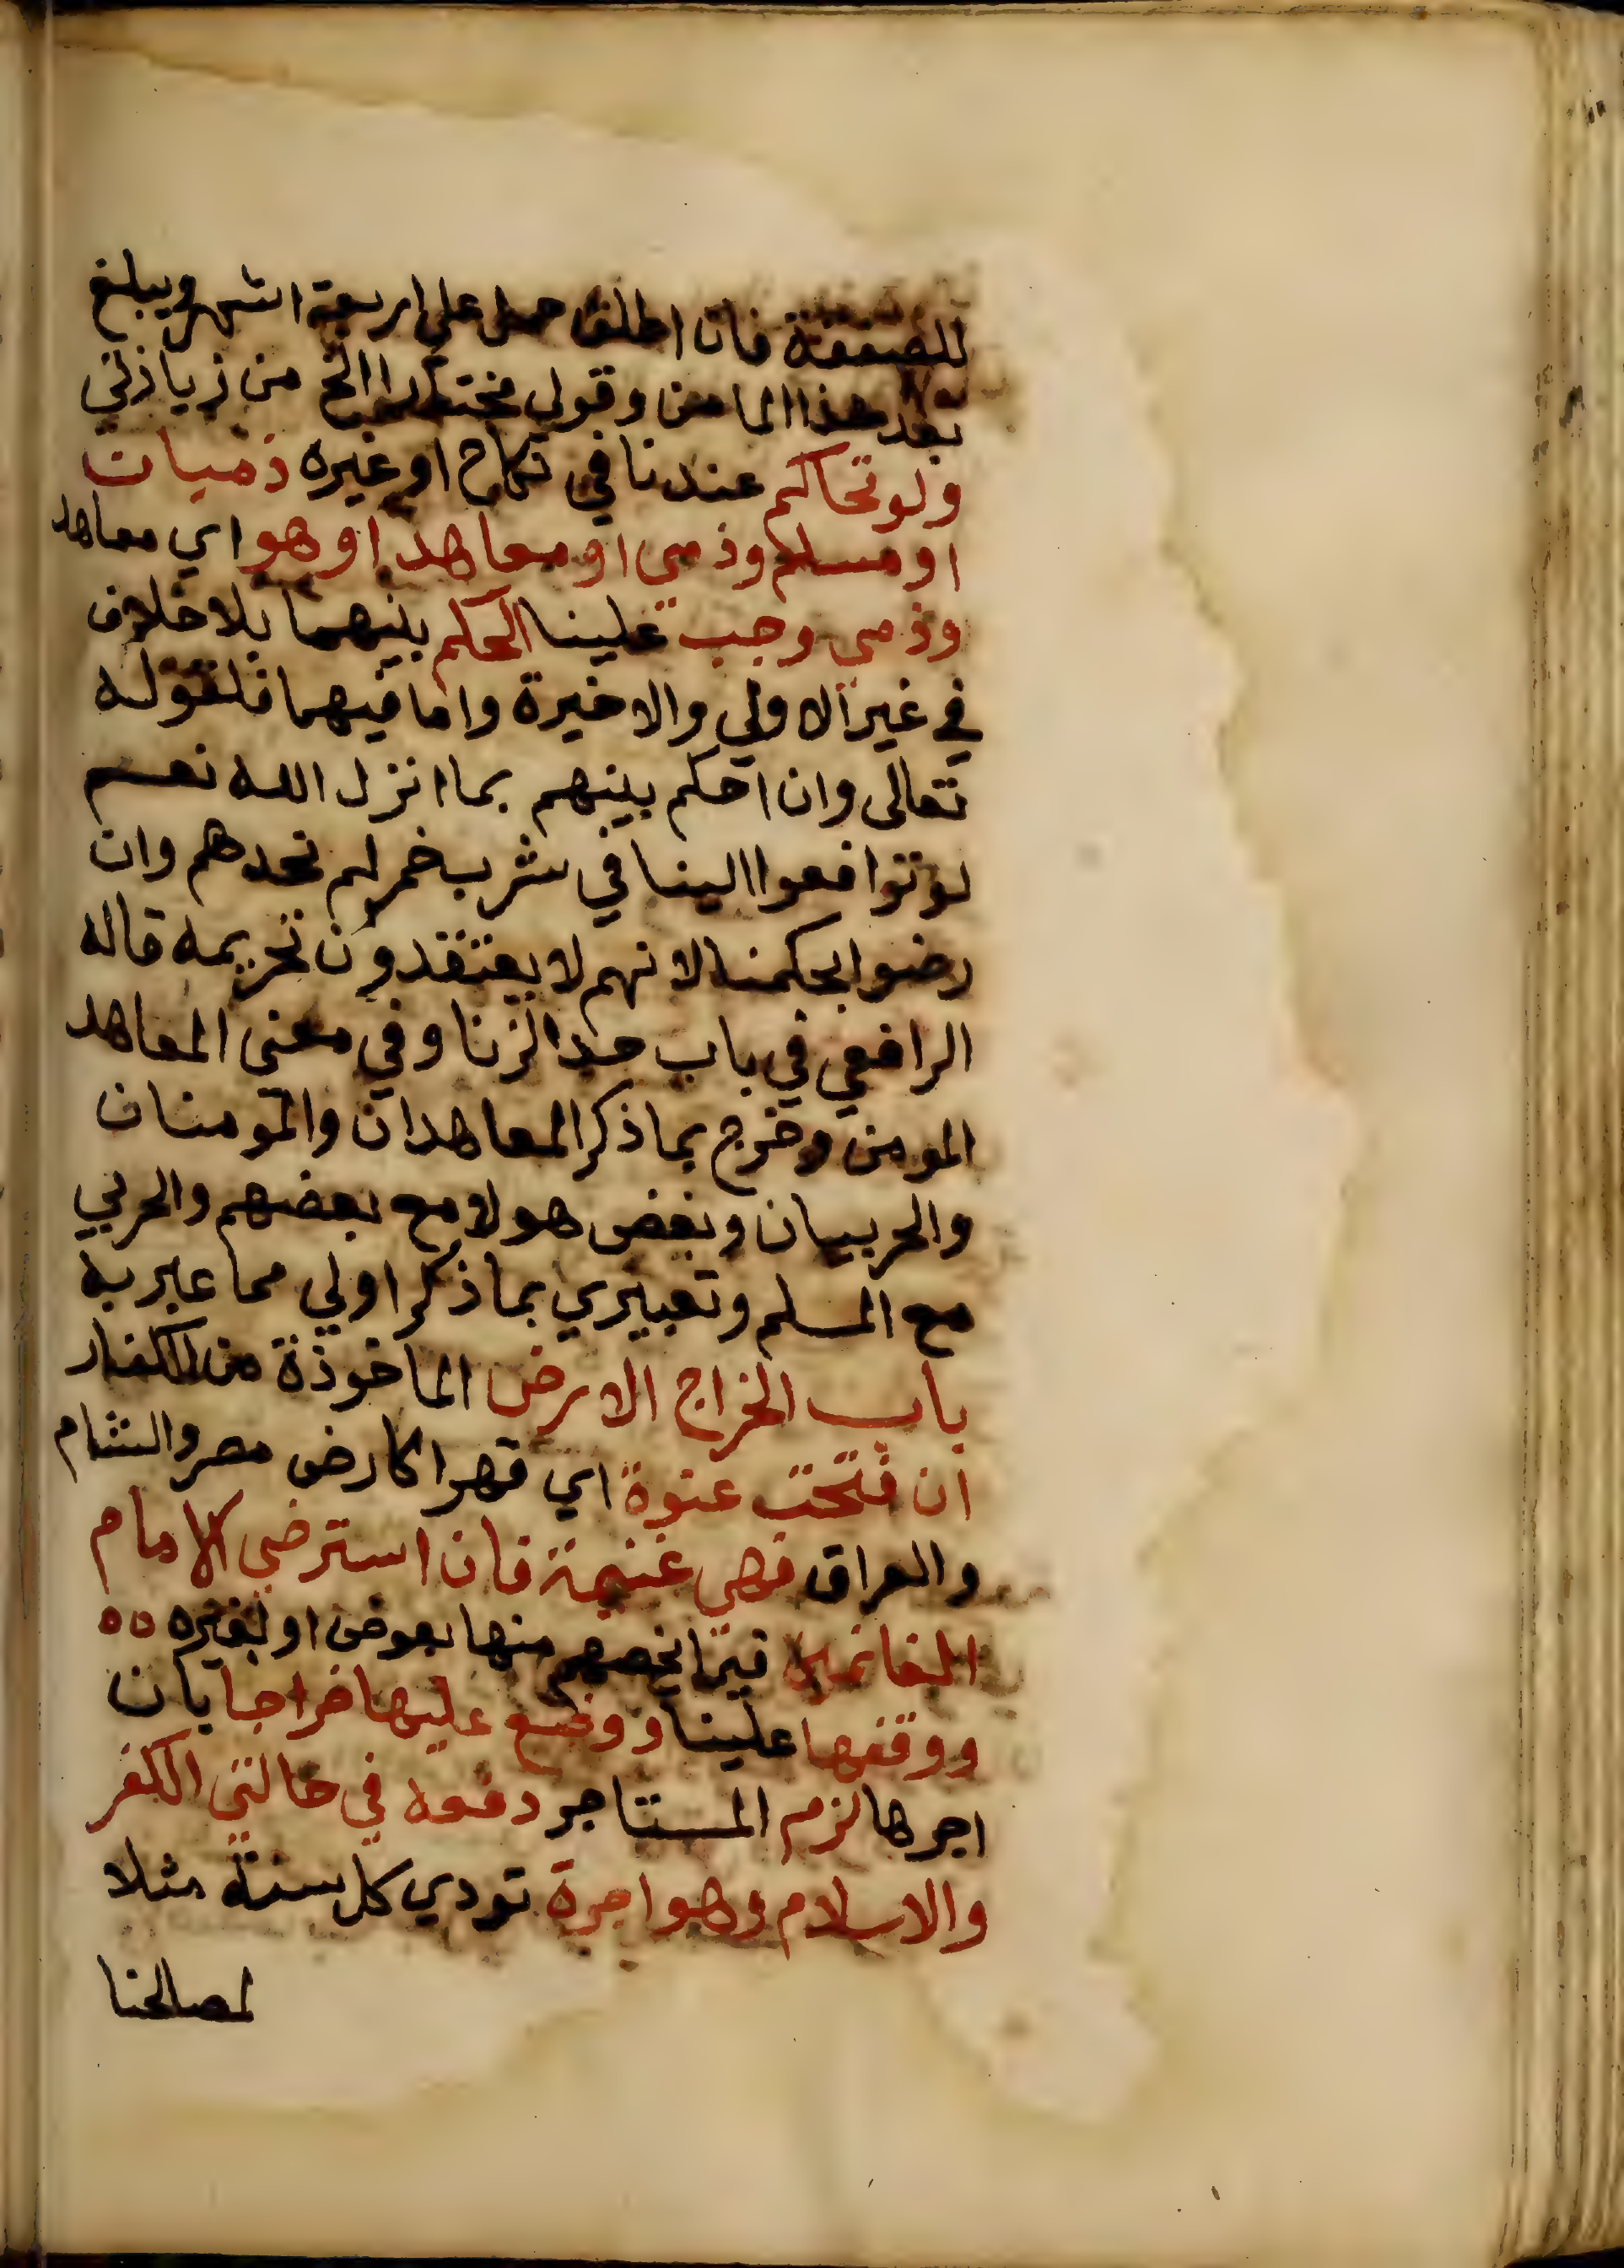 للصفقة فان اطلق حمل علي اربعة اشهر ويبلغ
بعد هذا المامن وقولي الخ من زيادتي
ولو تحاكم عندنا في نكاح او غيره ذميات
او مسلم وذمي او معاهد او هو اي معاهد
وذمي وجب علينا الحكم بينهما بلا خلاف
في غير الاولي والاخيرة واما فيهما فلقوله
تعالى وان احكم بينهم بما انزل الله نعم
لو توافعوا الينا في شرب خمر لم نحدهم وان
رضوا بحكمنا لانهم لا يعتقدون تحريمه قاله
الرافعي في باب حد الزنا وفي معنى المعاهد
المومن وخرج بما ذكر المعاهدان والمومنان
والحربيان وبعض هولا مع بعضهم والحربي
مع المسلم وتعبيري بما ذكر اولي مما عبر به
باب الخراج الارض الماخوذة من الكفار
ان فتحت عنوة اي قهرا كارض مصر والشام
والعراق فهي غنيمة فان استرضي الامام
الغانمين فيما يخصهم منها بعوض او بغيره ٥٥
ووقفها علينا ووضع عليها خراجا بان
اجرها لزم المستاجر دفعه في حالتي الكفر
والاسلام وهو اجرة تودي كل سنة مثلا
لمصالحنا